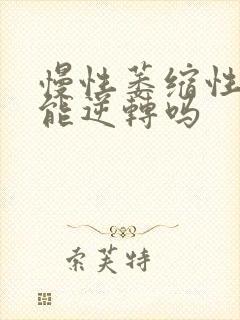 慢性萎缩性
能逆轉吗
索芙特